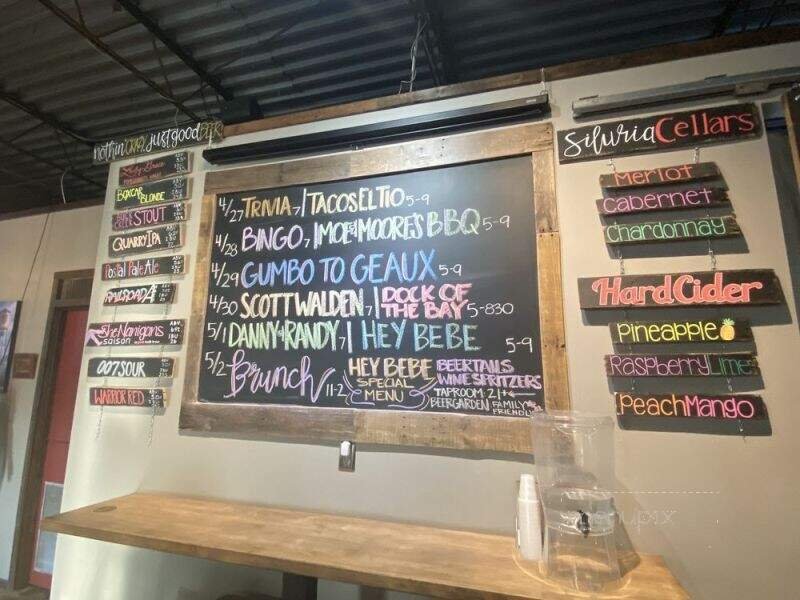 nothin' just good BEER
BOXCAR BLONDE
STOUT
QUARRY IPA
Postal Pale Ale
RAILROAD
SheNanigans
saison
007 SOUR
WARRIOR RED
4/27 TRIVIA 7 | TACOS EL TIO 5-9
4/28 BINGO 7 | MOE & MOORE'S BBQ 5-9
4/29 GUMBO TO GEAUX 5-9
4/30 SCOTT WALDEN 7 | DOCK OF THE BAY 5-830
5/1 DANNY + RANDY 7 | HEY BEBE 5-9
5/2 Brunch 11-2
HEY BEBE
SPECIAL
MENU
BEERTAILS
WINE SPRITZERS
TAPROOM: 21+
BEERGARDEN FAMILY FRIENDLY
Siluria Cellars
MERLOT
CABERNET
Chardonnay
Hard Cider
PINEAPPLE
RASPBERRY LIME
PEACH MANGO